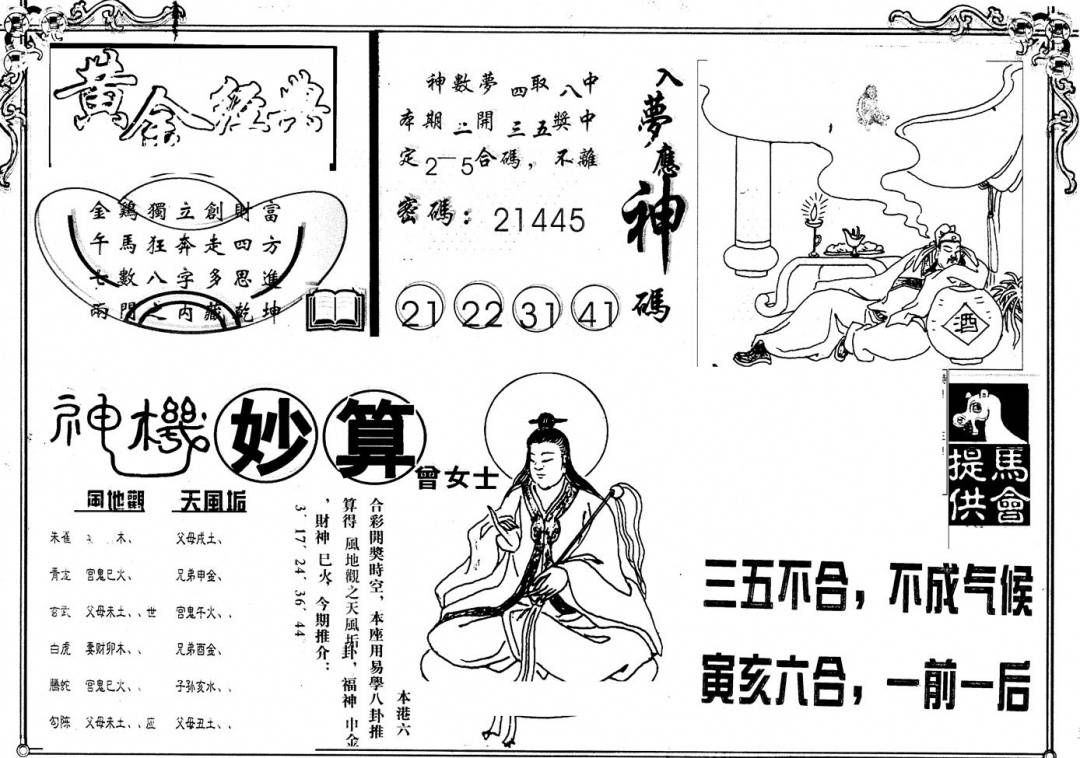 黃金
金鷄獨立創財富
午馬狂奔走四方
七數八字多思進
兩門之内藏乾坤
神數夢四取八中
本期二開三五獎中
定2一5合碼，不離
密碼：21445
21 22 31 41
入夢應神碼
酒
神機妙算
曾女士
風地觀 天風垢
朱雀 木、 父母戌土、
青龙 宫鬼巳火、 兄弟申金、
玄武 父母未土、、世 宫鬼午火、、
白虎 妻財卯木、、 兄弟酉金、
騰蛇 宫鬼巳火、、 子孫亥水、、
勾陈 父母未土、、应 父母丑土、、
本港六
合彩開獎時空，本座用易學八卦推
算得 風地觀之天風垢卦，福神 申金
，財神 巳火，今期推介：
3′17′24′36′44
馬會提供
三五不合，不成气候
寅亥六合，一前一后